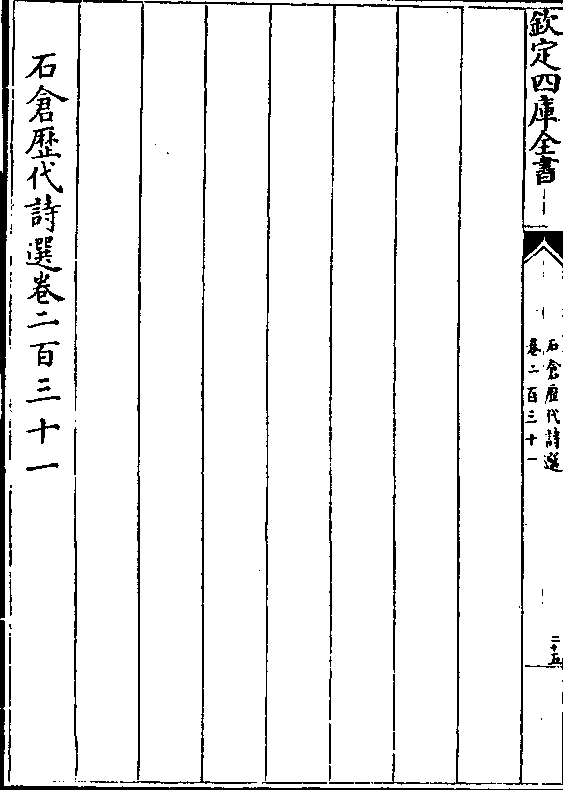 欽定四庫全書
石倉歷代詩選
卷二百三十一
二十五
石倉歷代詩選卷二百三十一